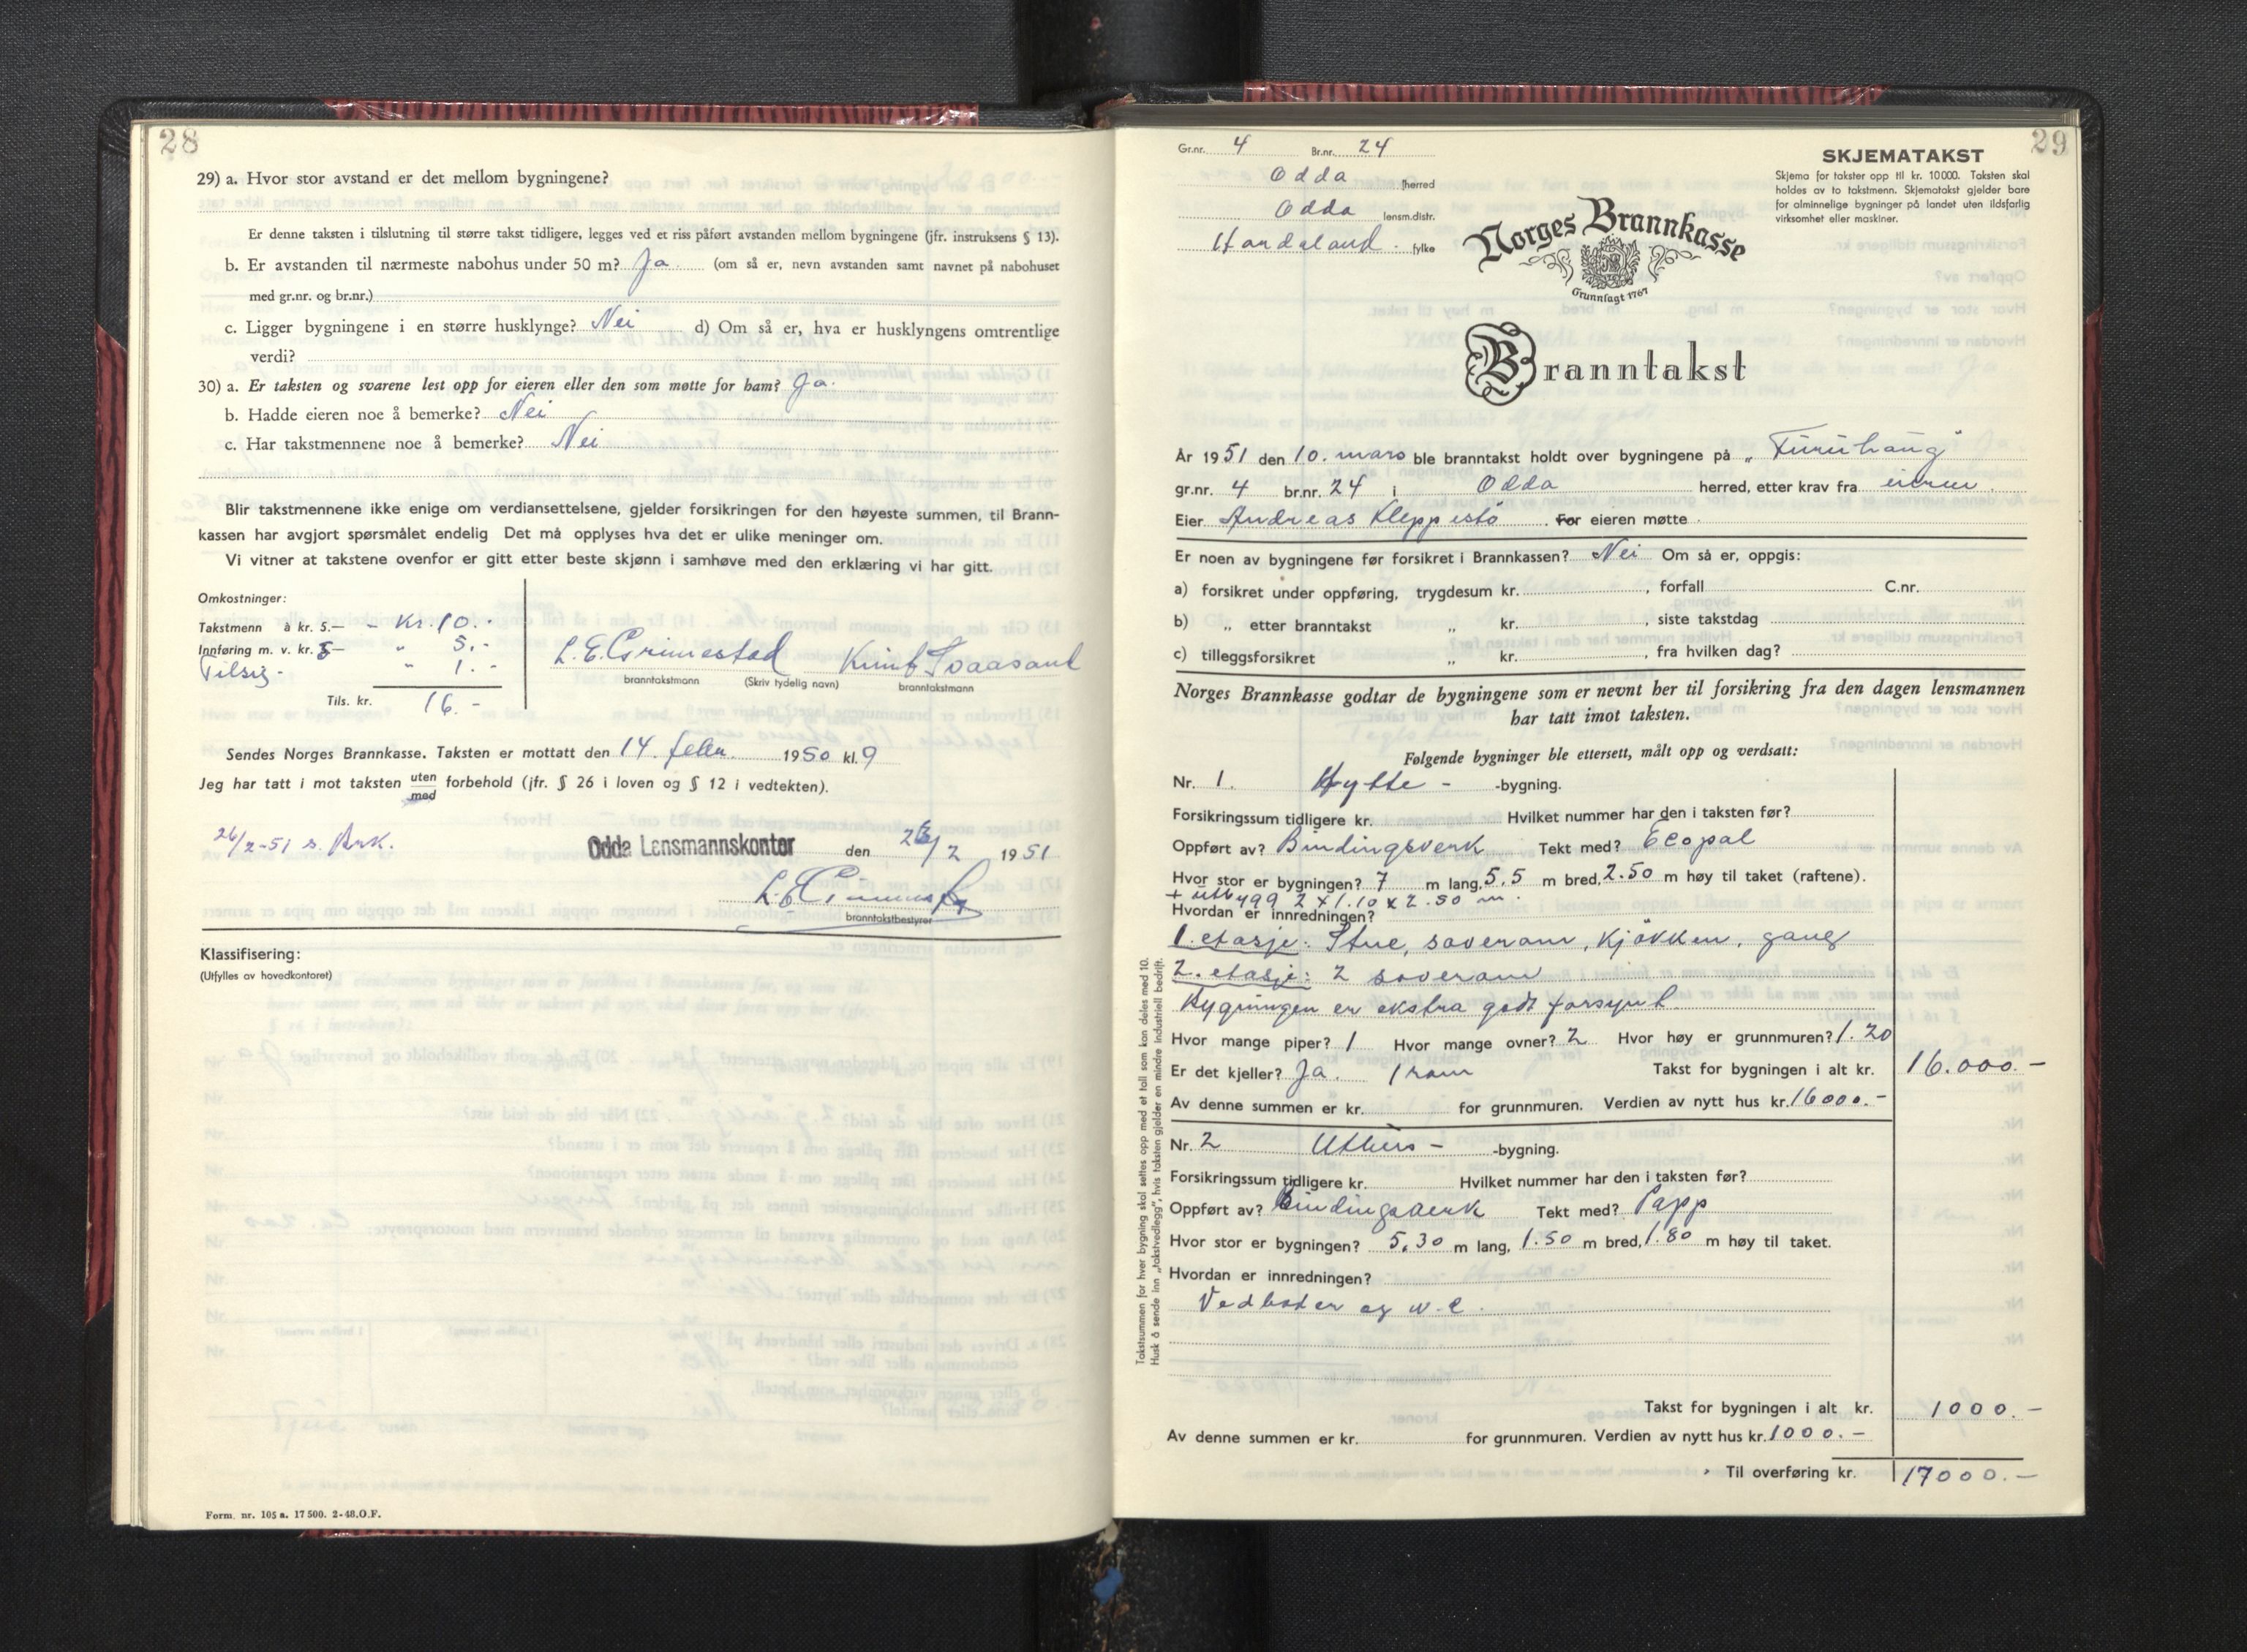 28
29) a. Hvor stor avstand er det mellom bygningene?
Er denne taksten i tilslutning til større takst tidligere, legges ved et riss påført avstanden mellom bygningene (jfr. instruksens § 13).
b. Er avstanden til nærmeste nabohus under 50 m? Ja. (om så er, nevn avstanden samt navnet på nabohuset
med gr.nr. og br.nr.)
c. Ligger bygningene i en større husklynge? Nei d) Om så er, hva er husklyngens omtrentlige
verdi?
30) a. Er taksten og svarene lest opp for eieren eller den som møtte for ham? Ja.
b. Hadde eieren noe å bemerke? Nei
c. Har takstmennene noe å bemerke? Nei
Blir takstmennene ikke enige om verdiansettelsene, gjelder forsikringen for den høyeste summen, til Brann-
kassen har avgjort spørsmålet endelig Det må opplyses hva det er ulike meninger om.
Vi vitner at takstene ovenfor er gitt etter beste skjønn i samhøve med den erklæring vi har gitt.
Omkostninger:
Takstmenn à kr. 5.— - Kr. 10.-
Innføring m. v. kr. 5— " 5.-
Tilsig- " 1.-
Tils. kr. 16.-
L. E. Grimestad Knut Svaasand
branntakstmann (Skriv tydelig navn) branntakstmann
Sendes Norges Brannkasse. Taksten er mottatt den 14. febr. 1950 kl. 9
Jeg har tatt i mot taksten uten/med forbehold (jfr. § 26 i loven og § 12 i vedtekten).
26/2-51 s. Brk.
Odda Lensmannskontor den 26/2 1951
branntakstbestyrer
Klassifisering:
(Utfylles av hovedkontoret)
Form. nr. 105 a. 17 500. 2-48. O.F.
29
Gr.nr. 4 Br.nr. 24
Odda herred
Odda lensm.distr.
Hordaland. fylke
SKJEMATAKST
Skjema for takster opp til kr. 10000. Taksten skal
holdes av to takstmenn. Skjematakst gjelder bare
for alminnelige bygninger på landet uten ildsfarlig
virksomhet eller maskiner.
Norges Brannkasse
Grunnlagt 1767
Branntakst
År 1951 den 10. mars ble branntakst holdt over bygningene på „Furuhaug"
gr.nr. 4 br.nr. 24 i Odda herred, etter krav fra eieren.
Eier Andreas Kleppestö. For eieren møtte
Er noen av bygningene før forsikret i Brannkassen? Nei Om så er, oppgis:
a) forsikret under oppføring, trygdesum kr. , forfall C.nr.
b) „ etter branntakst „ kr. , siste takstdag
c) tilleggsforsikret „ kr. , fra hvilken dag?
Norges Brannkasse godtar de bygningene som er nevnt her til forsikring fra den dagen lensmannen
har tatt imot taksten.
Følgende bygninger ble ettersett, målt opp og verdsatt:
Nr. 1. Hytte - -bygning.
Forsikringssum tidligere kr. Hvilket nummer har den i taksten før?
Oppført av? Bindingsverk Tekt med? Ecopal
Hvor stor er bygningen? 7 m lang, 5,5 m bred, 2.50 m høy til taket (raftene).
+ utbygg 2 x 1.10 x 2.50 m.
Hvordan er innredningen?
1. etasje: Stue, soverom, kjökken, gang
2. etasje: 2 soverom
Bygningen er ekstra godt forsynt
Hvor mange piper? 1 Hvor mange ovner? 2 Hvor høy er grunnmuren? 1.20
Er det kjeller? Ja. 1 rom Takst for bygningen i alt kr. 16.000.-
Av denne summen er kr. for grunnmuren. Verdien av nytt hus kr. 16000.-
Nr. 2 Uthus - -bygning.
Forsikringssum tidligere kr. Hvilket nummer har den i taksten før?
Oppført av? Bindingsverk Tekt med? Papp
Hvor stor er bygningen? 5,30 m lang, 1.50 m bred, 1.80 m høy til taket.
Hvordan er innredningen?
Vedboder og w.c.
Takst for bygningen i alt kr. 1000.-
Av denne summen er kr. for grunnmuren. Verdien av nytt hus kr. 1000.-
Til overføring kr. 17000.-
Takstsummen for hver bygning skal settes opp med et tall som kan deles med 10.
Husk å sende inn „takstvedlegg", hvis taksten gjelder en mindre industriell bedrift.